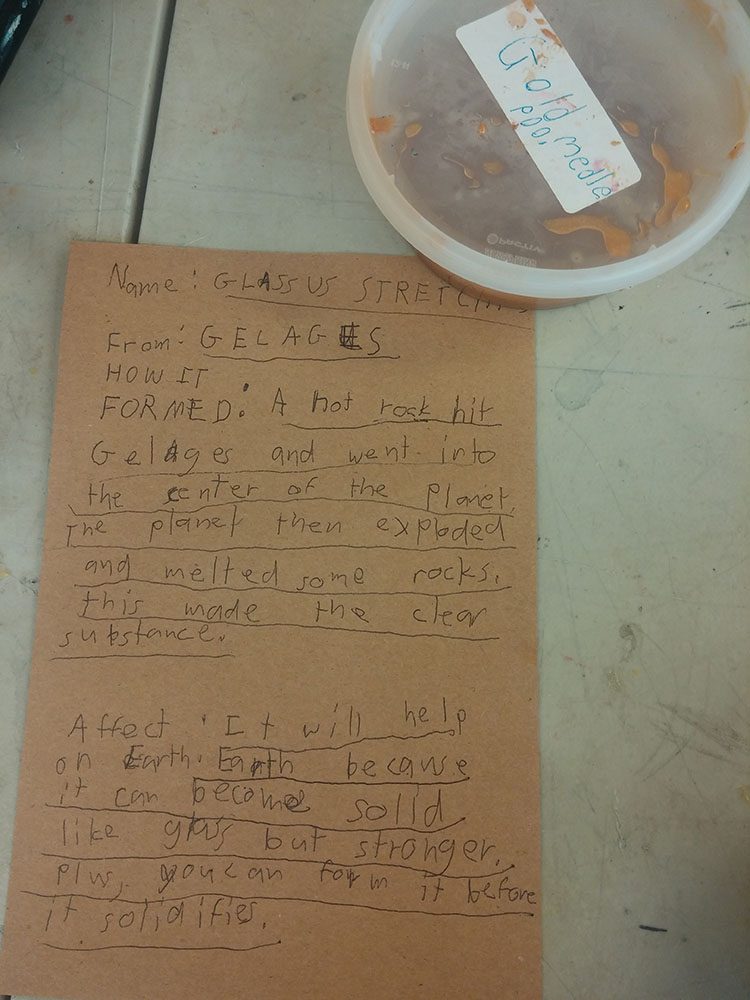 Gold
poo, medle
Name: GLASSUS
From: GELAGES
HOW IT
FORMED: A hot rock hit
Gelages and went into
the center of the planet.
The planet then exploded
and melted some rocks.
this made the clear
substance.
Affect: It will help
on Earth. Earth because
it can become solid
like glass but stronger.
Plus, you can form it before
it solidifies.